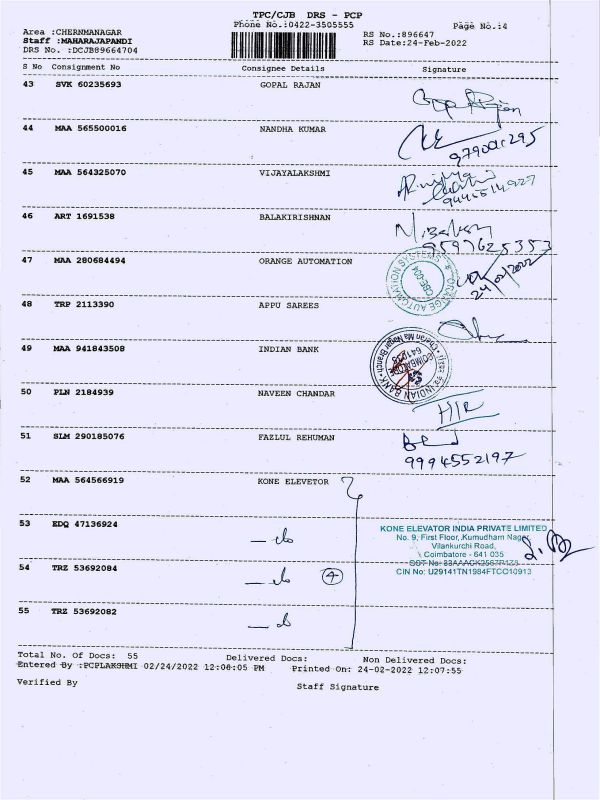 TPC/CJB DRS - PCP
Phone No.:0422-3505555
Page No.:4
Area :CHERNMANAGAR
Staff :MAHARAJAPANDI
DRS No. :DCJB89664704
RS No.:896647
RS Date:24-Feb-2022
S No Consignment No Consignee Details Signature
43 SVK 60235693 GOPAL RAJAN
44 MAA 565500016 NANDHA KUMAR
45 MAA 564325070 VIJAYALAKSHMI
46 ART 1691538 BALAKIRISHNAN
9597625353
47 MAA 280684494 ORANGE AUTOMATION
ORANGE AUTOMATION SYSTEMS
CBE-034
24/02/2022
48 TRP 2113390 APPU SAREES
49 MAA 941843508 INDIAN BANK
INDIAN BANK
COIMBATORE
50 PLN 2184939 NAVEEN CHANDAR
51 SLM 290185076 FAZLUL REHUMAN
9994552197
52 MAA 564566919 KONE ELEVETOR
53 EDQ 47136924
KONE ELEVATOR INDIA PRIVATE LIMITED
No. 9, First Floor, Kumudham Nagar,
Vilankurchi Road,
Coimbatore - 641 035
CIN No: U29141TN1984FTC010913
54 TRZ 53692084 4
55 TRZ 53692082
Total No. of Docs: 55 Delivered Docs: Non Delivered Docs:
Entered By :PCPLAKSHMI 02/24/2022 12:06:05 PM Printed On: 24-02-2022 12:07:55
Verified By Staff Signature